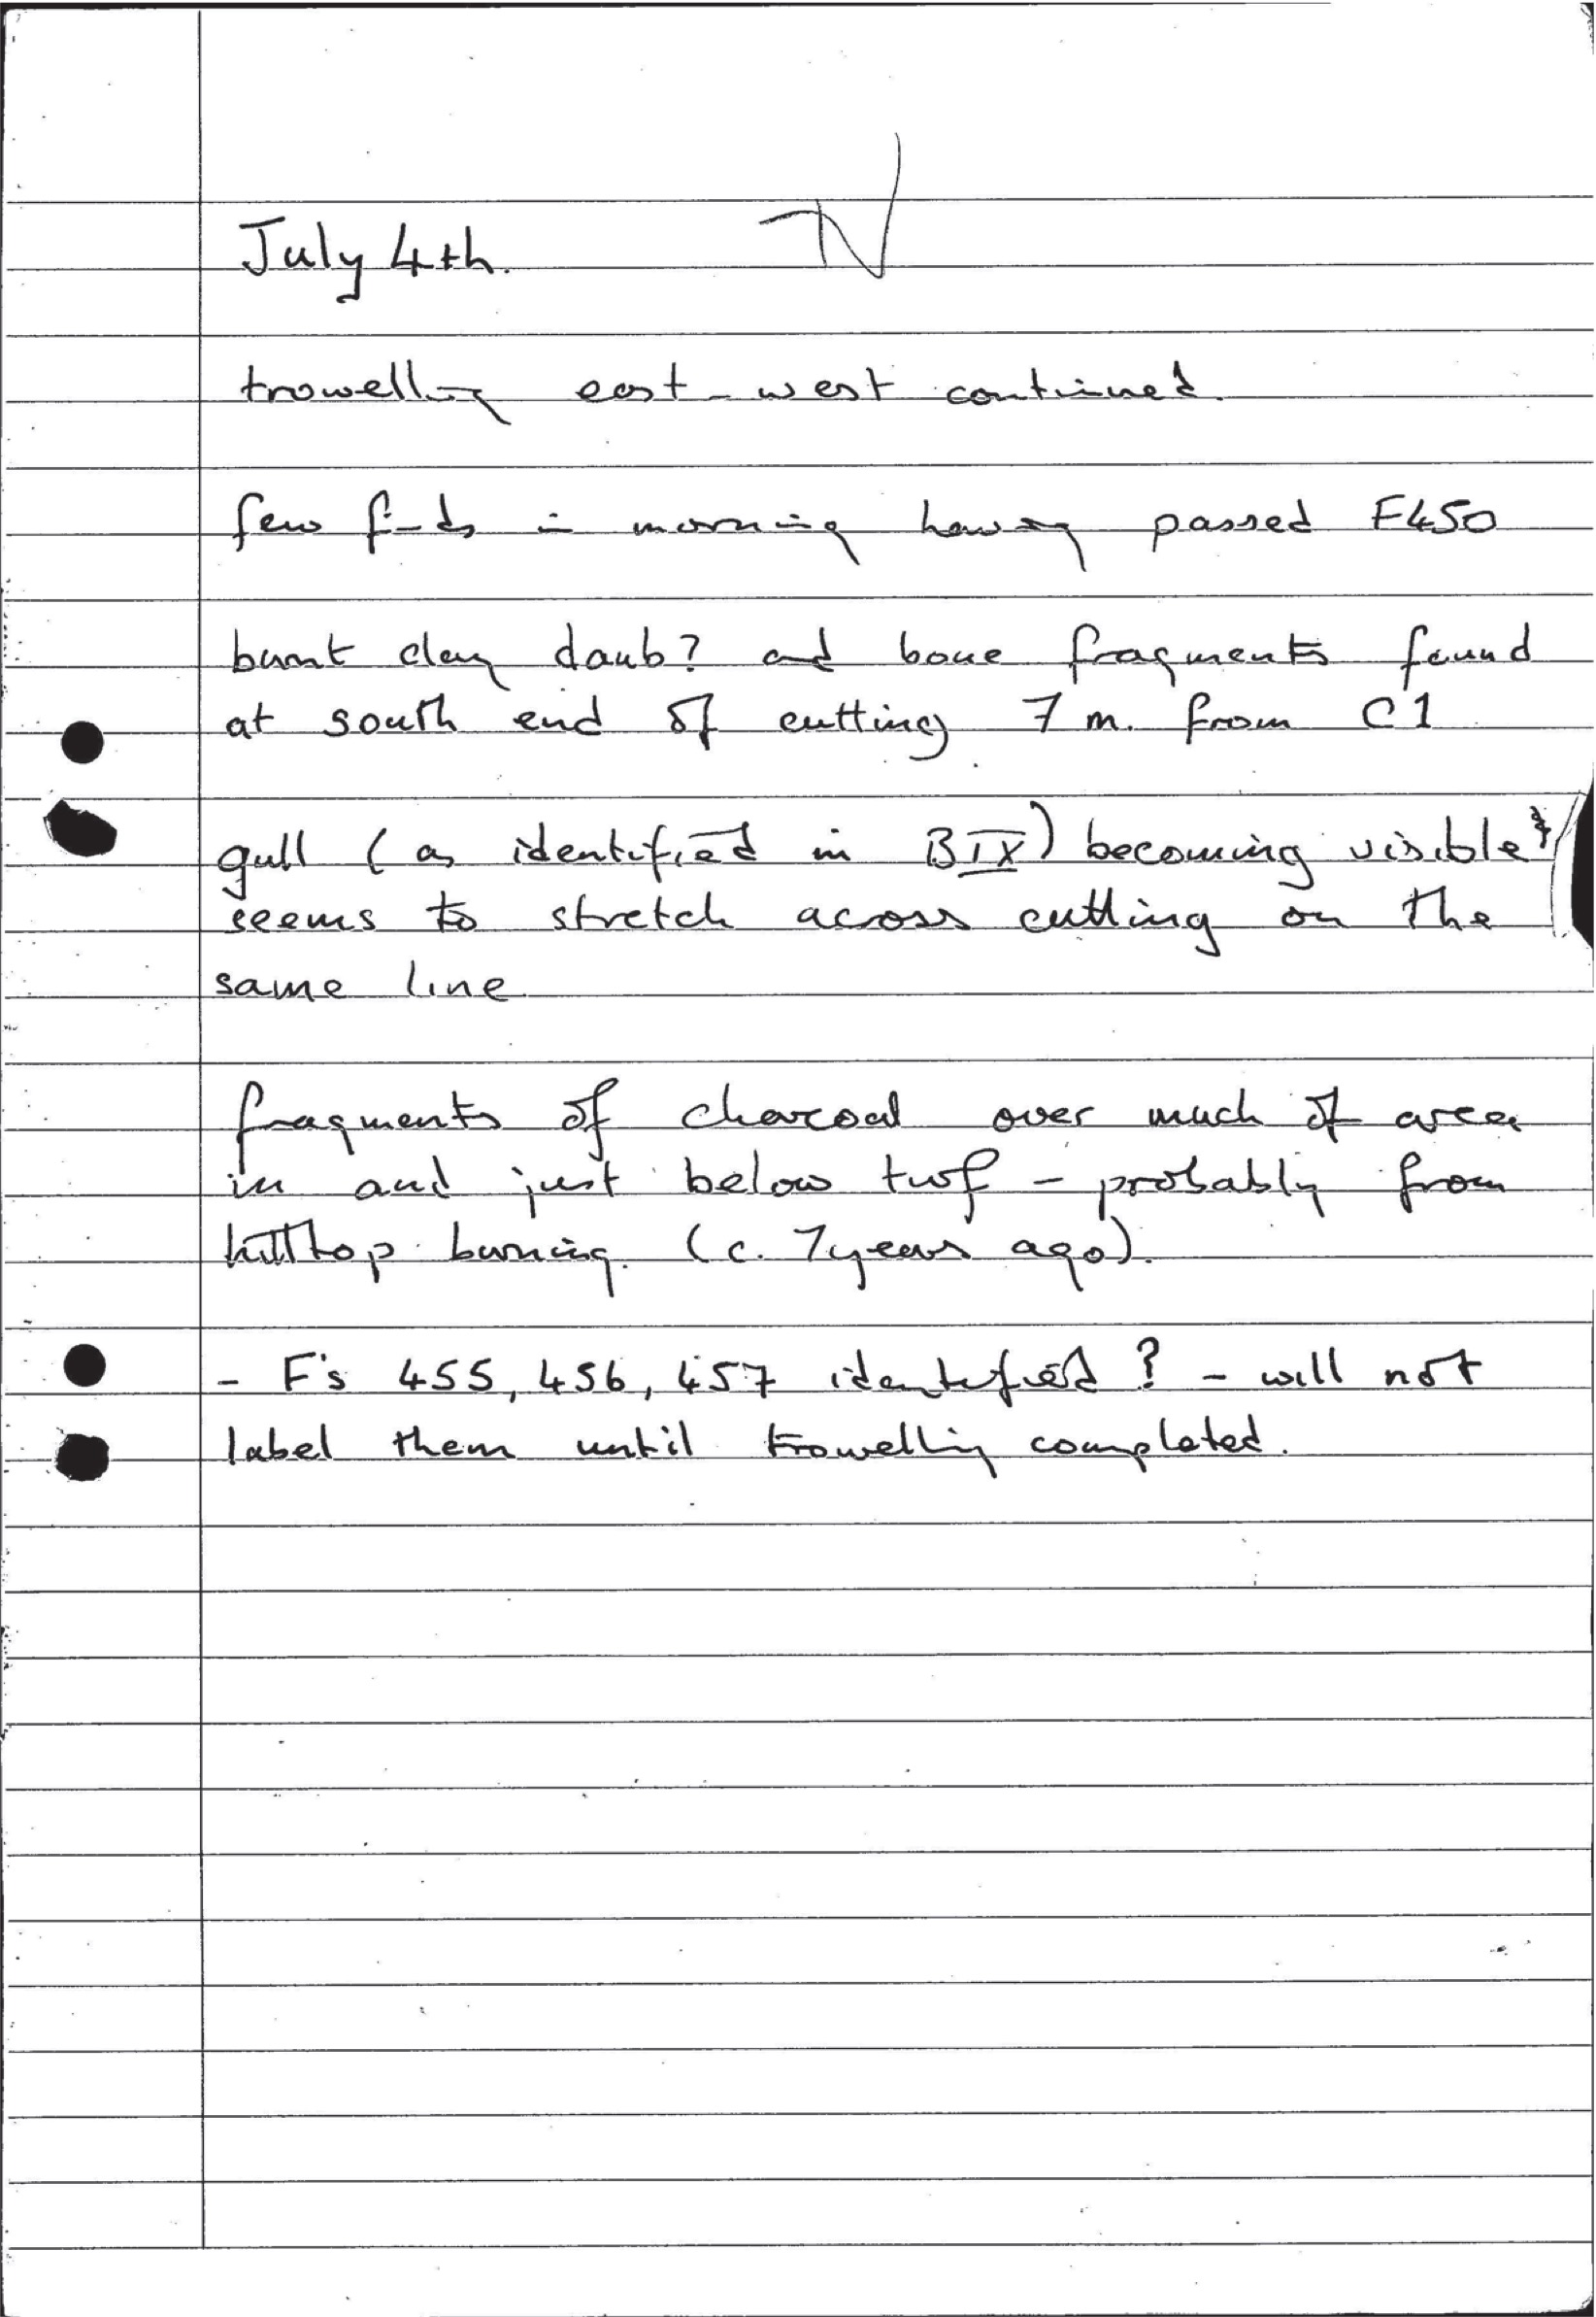 July 4th.
trowelling east-west continued.
few finds in morning having passed F450
burnt clay daub? and bone fragments found
at south end of cutting 7 m. from C1
gull (as identified in BIX) becoming visible &
seems to stretch across cutting on the
same line
fragments of charcoal over much of area
in and just below turf - probably from
hilltop burning. (c. 7 years ago).
- F's 455, 456, 457 identified? - will not
label them until trowelling completed.